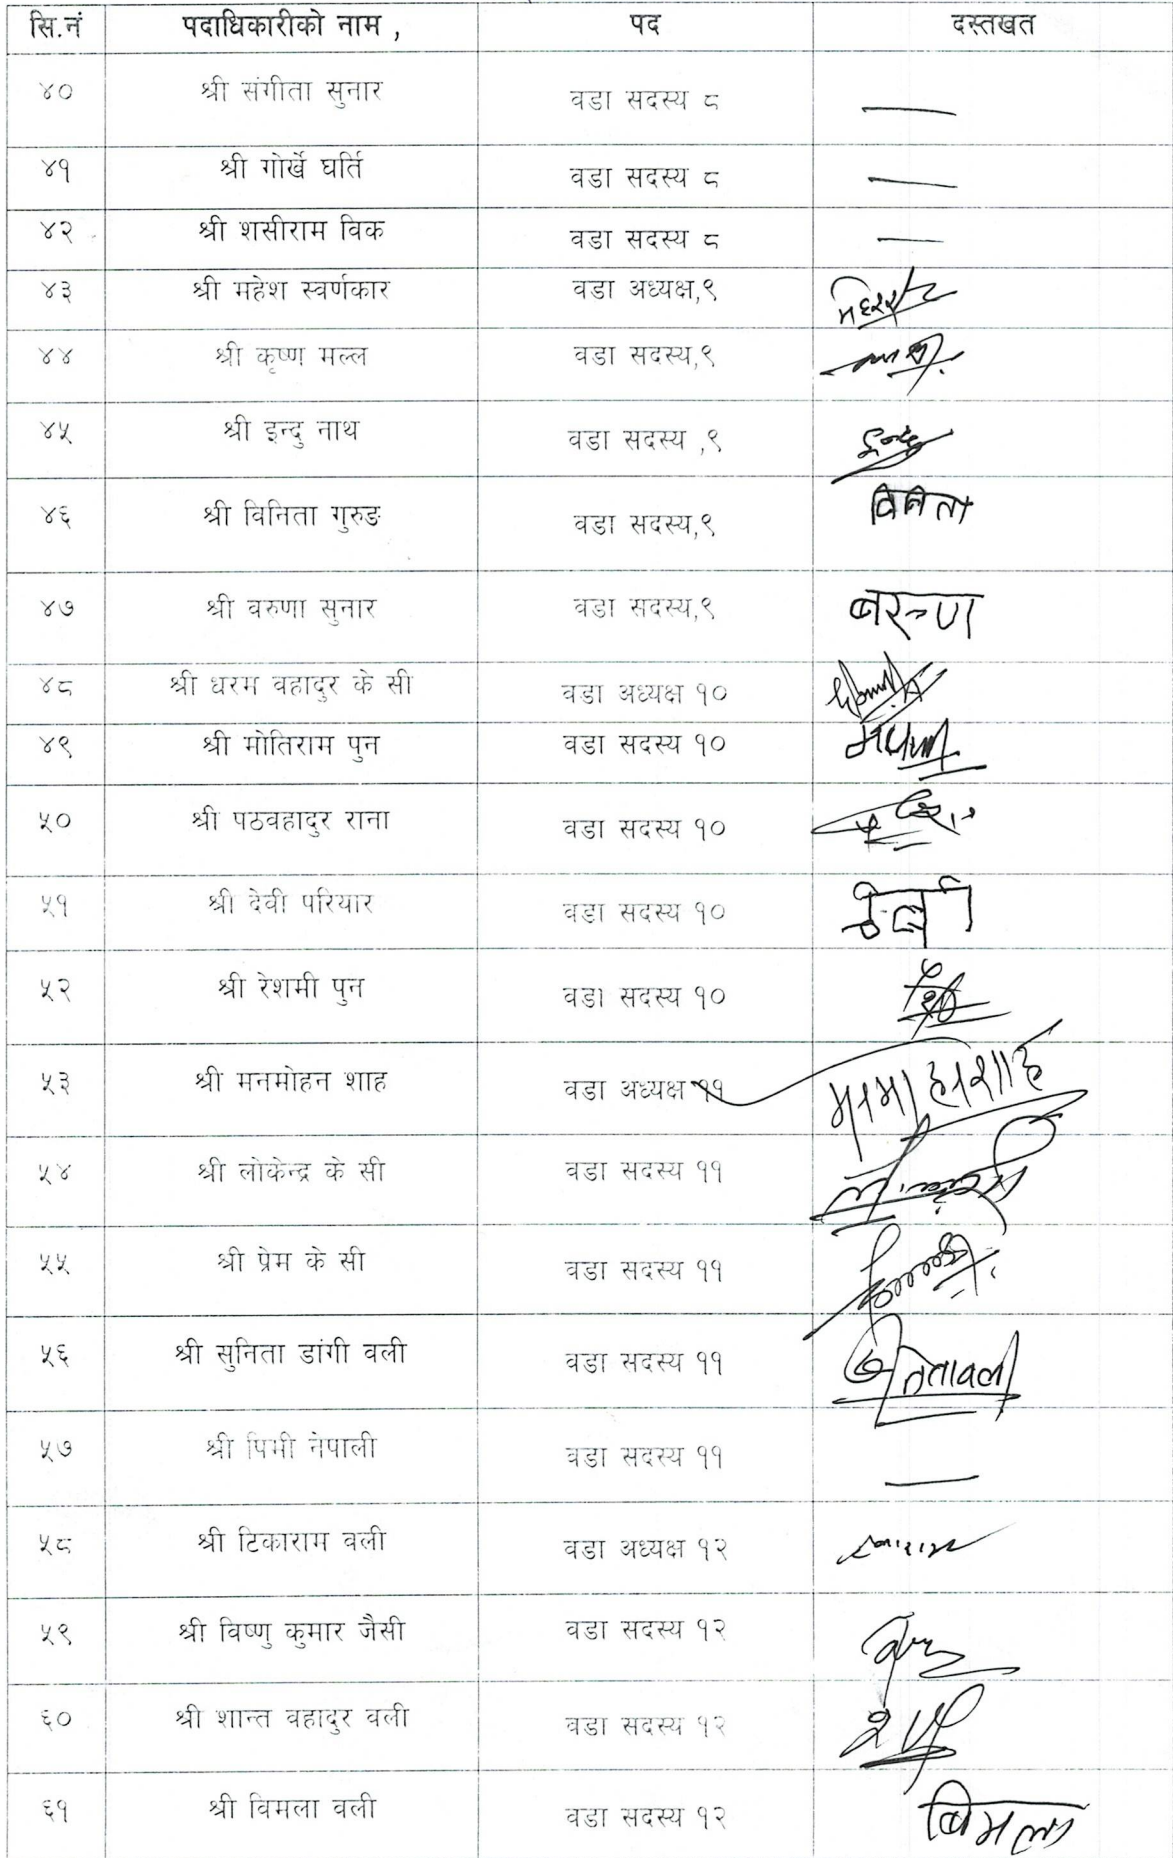 सि.नं पदाधिकारीको नाम , पद दस्तखत
४० श्री संगीता सुनार वडा सदस्य ८ —
४१ श्री गोर्खे घर्ति वडा सदस्य ८ —
४२ श्री शसीराम विक वडा सदस्य ८ —
४३ श्री महेश स्वर्णकार वडा अध्यक्ष,९
४४ श्री कृष्ण मल्ल वडा सदस्य,९
४५ श्री इन्दु नाथ वडा सदस्य ,९ इन्दु
४६ श्री विनिता गुरुङ वडा सदस्य,९ विनिता
४७ श्री वरुणा सुनार वडा सदस्य,९ बरुणा
४८ श्री धरम वहादुर के सी वडा अध्यक्ष १०
४९ श्री मोतिराम पुन वडा सदस्य १०
५० श्री पठवहादुर राना वडा सदस्य १०
५१ श्री देवी परियार वडा सदस्य १० देवी
५२ श्री रेशमी पुन वडा सदस्य १०
५३ श्री मनमोहन शाह वडा अध्यक्ष ११
५४ श्री लोकेन्द्र के सी वडा सदस्य ११
५५ श्री प्रेम के सी वडा सदस्य ११
५६ श्री सुनिता डांगी वली वडा सदस्य ११
५७ श्री पिमी नेपाली वडा सदस्य ११ —
५८ श्री टिकाराम वली वडा अध्यक्ष १२
५९ श्री विष्णु कुमार जैसी वडा सदस्य १२
६० श्री शान्त वहादुर वली वडा सदस्य १२
६१ श्री विमला वली वडा सदस्य १२ बिमला